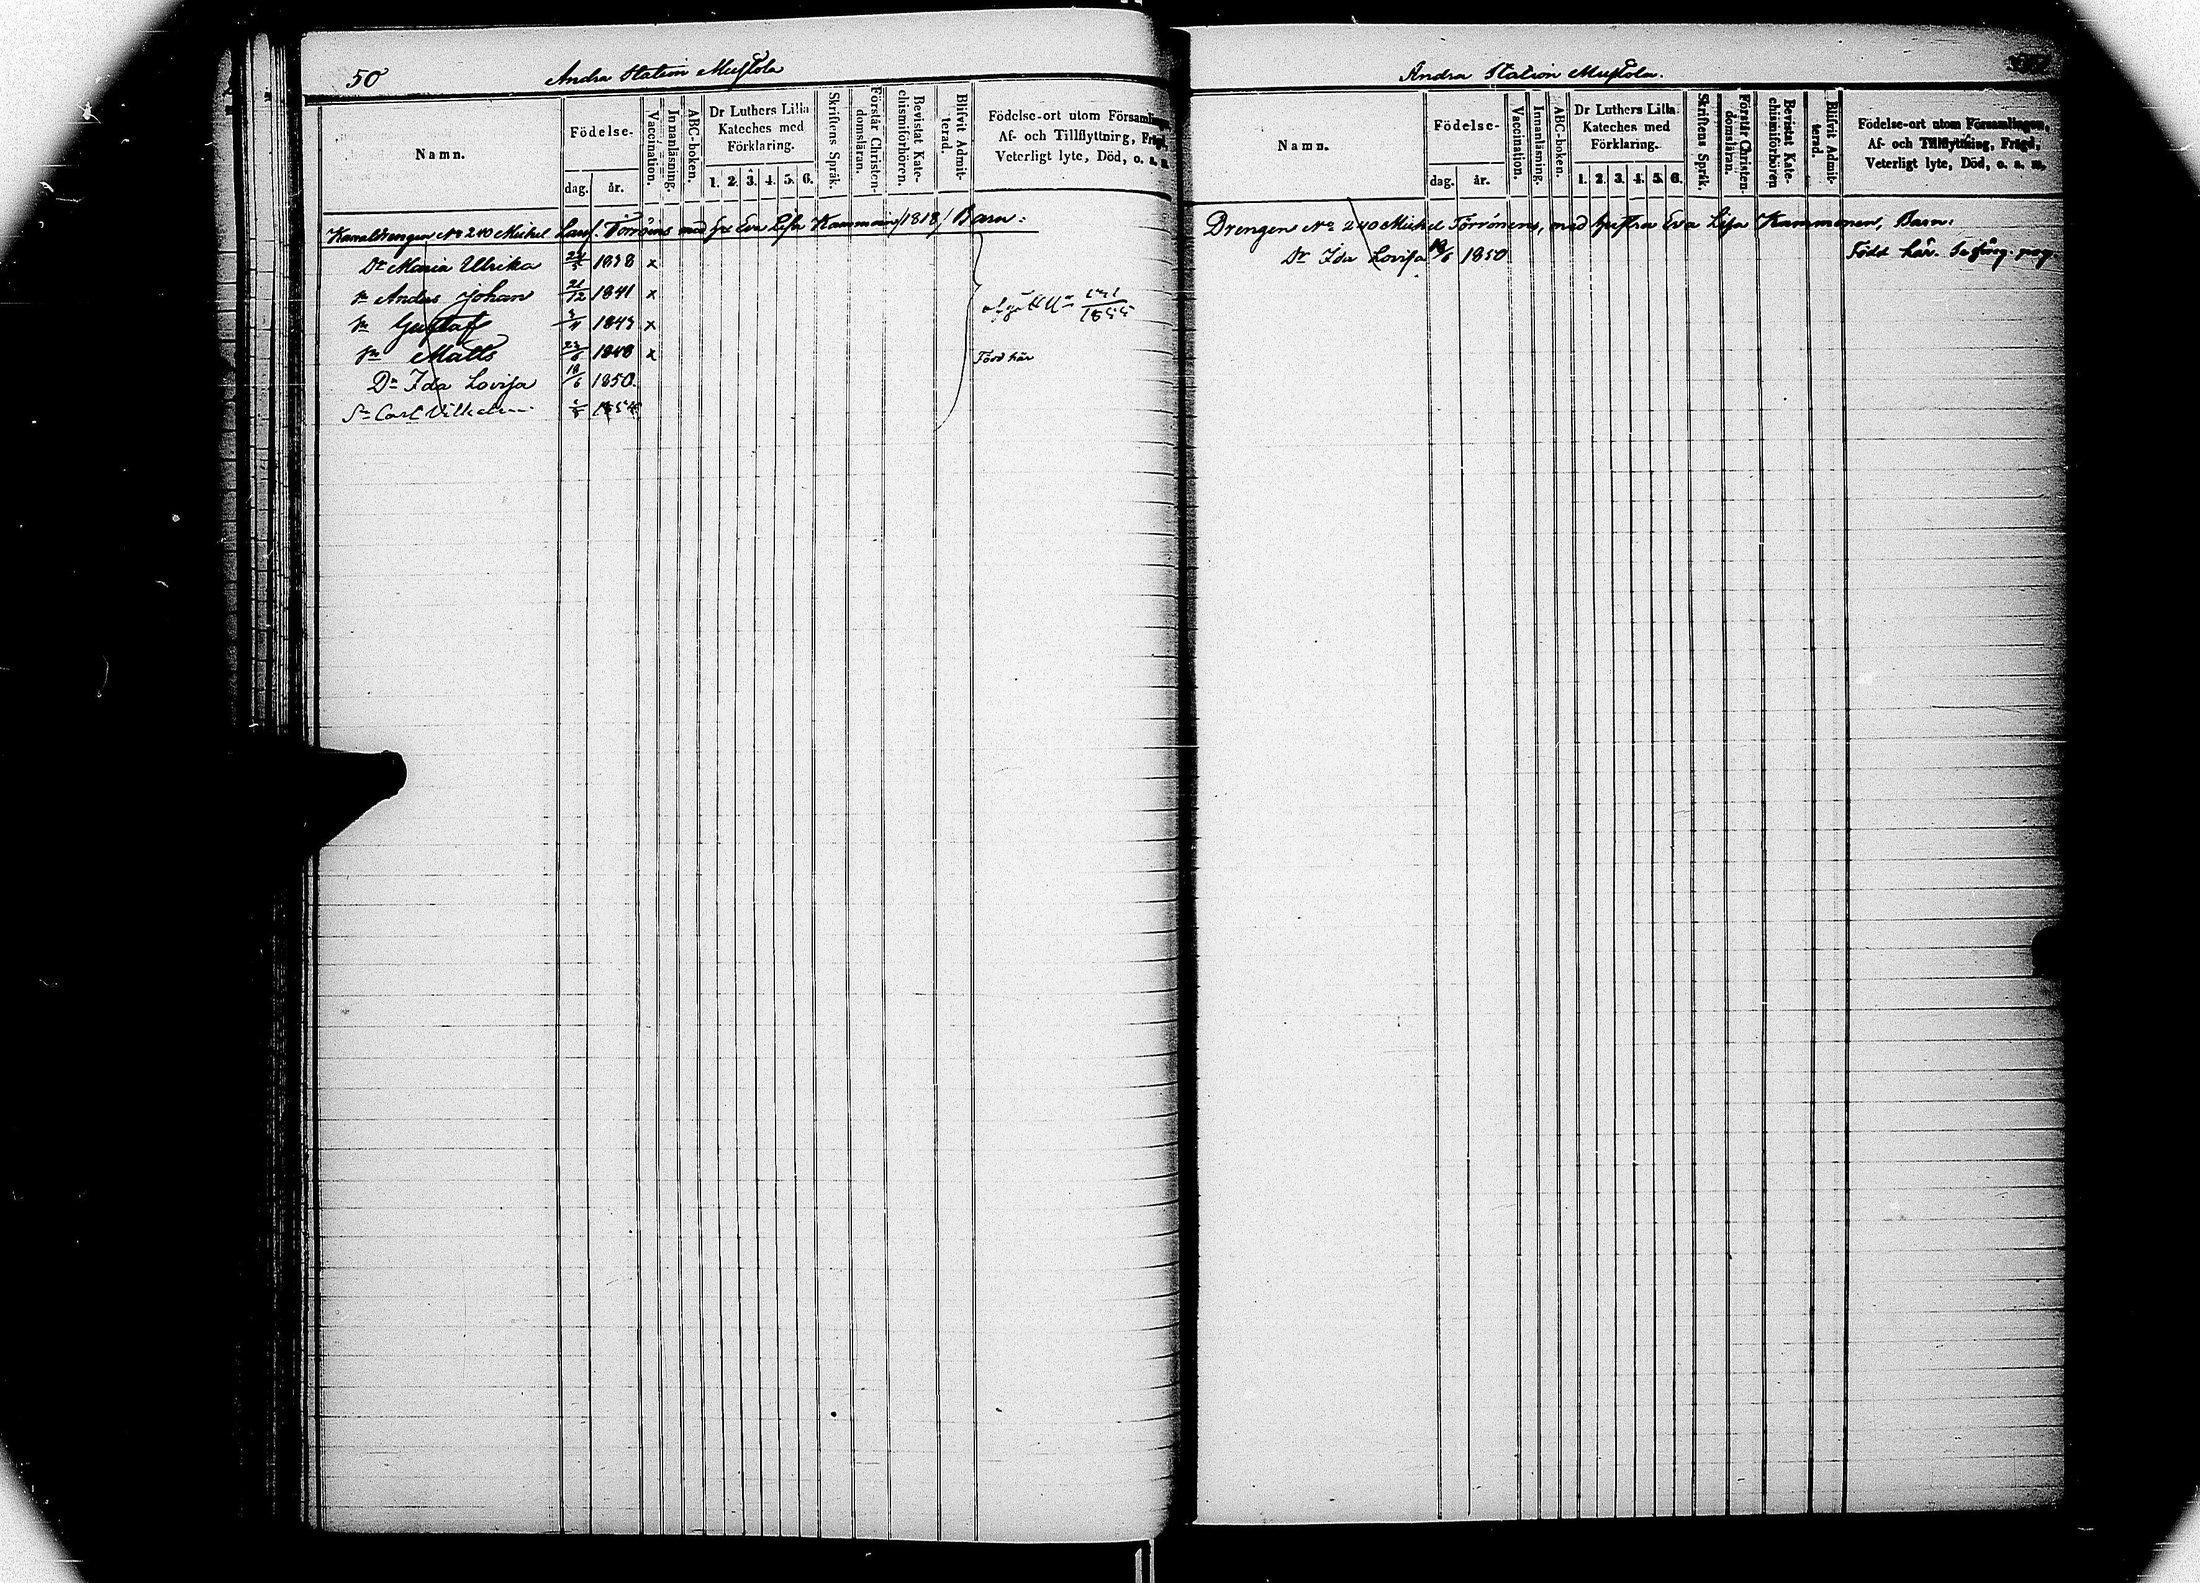 50
Andra Station Mustola
Namn.
Födelse-
dag. år.
Vaccination.
Innanläsning.
ABC-boken.
Dr Luthers Lilla
Kateches med
Förklaring.
1. 2. 3. 4. 5. 6.
Skriftens Språk.
Förstår Christen-
domsläran.
Bevistat Kate-
chismiförhören.
Blifvit Admit-
terad.
Födelse-ort utom Församlin
Af- och Tillflyttning, Frägd,
Veterligt lyte, Död, o. s. m.
Kanaldrengen No 240 Mickel Törrönens med Eva Lisa 1818, Barn:
Dr Maria Ulrika 1838 x
Sn Anders Johan 21/12 1841 x
Sn Gustaf 1843 x
Sn Matts 23/6 1848 x Född här
Dr Ida Lovisa 18/6 1850.
Sn Carl Vilhelm 1854
1855
Andra Station Mustola.
Namn.
Födelse-
dag. år.
Vaccination.
Innanläsning.
ABC-boken.
Dr Luthers Lilla
Kateches med
Förklaring.
1. 2. 3. 4. 5. 6.
Skriftens Språk.
Förstår Christen-
domsläran.
Bevistat Kate-
chismiförhören
Blifvit Admit-
terad.
Födelse-ort utom Församlingen,
Af- och Tillflyttning, Frägd,
Veterligt lyte, Död, o. s. m.
Drengen No 240 Mickel Törrönens, med hustru Eva Lisa Kammonen, Barn:
Dr Ida Lovisa 18/6 1850 Född här. Se förg. pag.